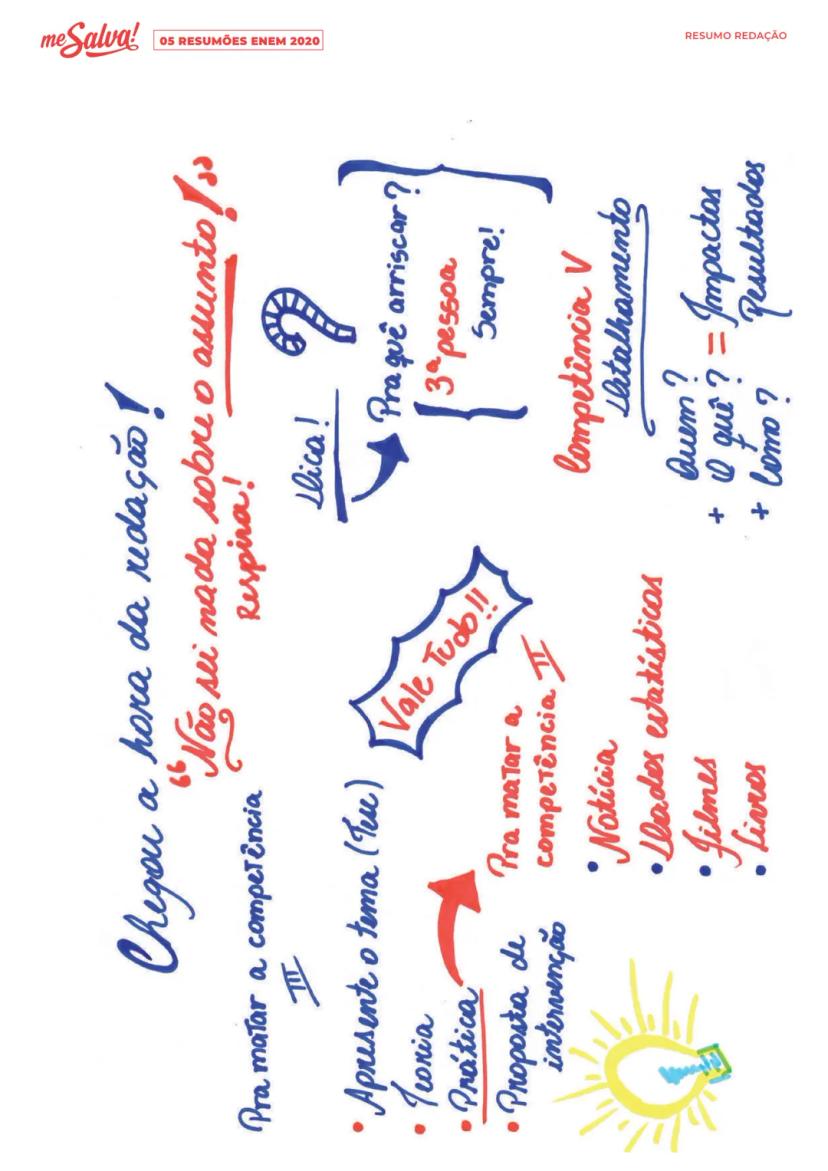 me Salva!
05 RESUMÕES ENEM 2020
RESUMO REDAÇÃO
Chegou a hora da redação!
"Não sei nada sobre o assunto!"
Respira!
Pra matar a competência
III
• Apresente o tema (Teu)
• Teoria
• Prática
• Proposta de
intervenção
Vale Tudo!!
Pra matar a
competência II
• Notícia
• Dados estatísticos
• Filmes
• Livros
Dica!
?
Pra quê arriscar?
3ª pessoa
Sempre!
Competência V
Detalhamento
Quem?
+ O quê? = Impactos
+ Como? Resultados